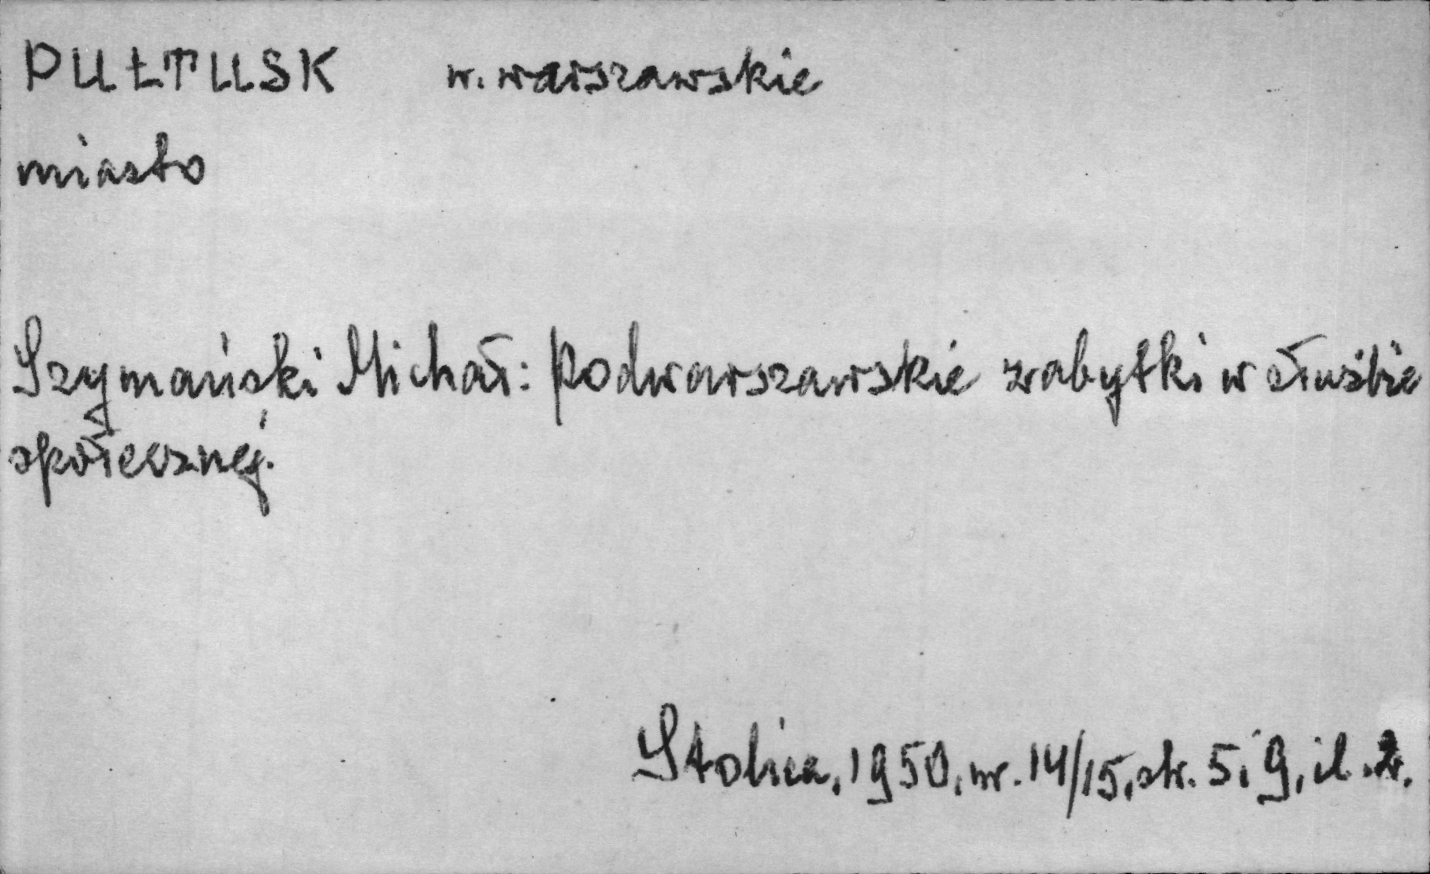 PUŁTUSK w. warszawskie
miasto
Szymański Michał: Podwarszawskie zabytki w służbie
społecznej.
Stolica, 1950, nr. 14/15, str. 5 i 9, il. 2.